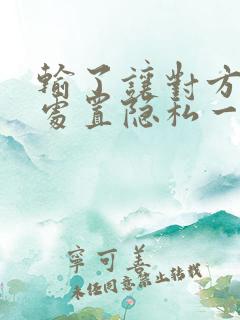 輸了讓對方
處置隐私一
寧可善
未经同意禁止转载